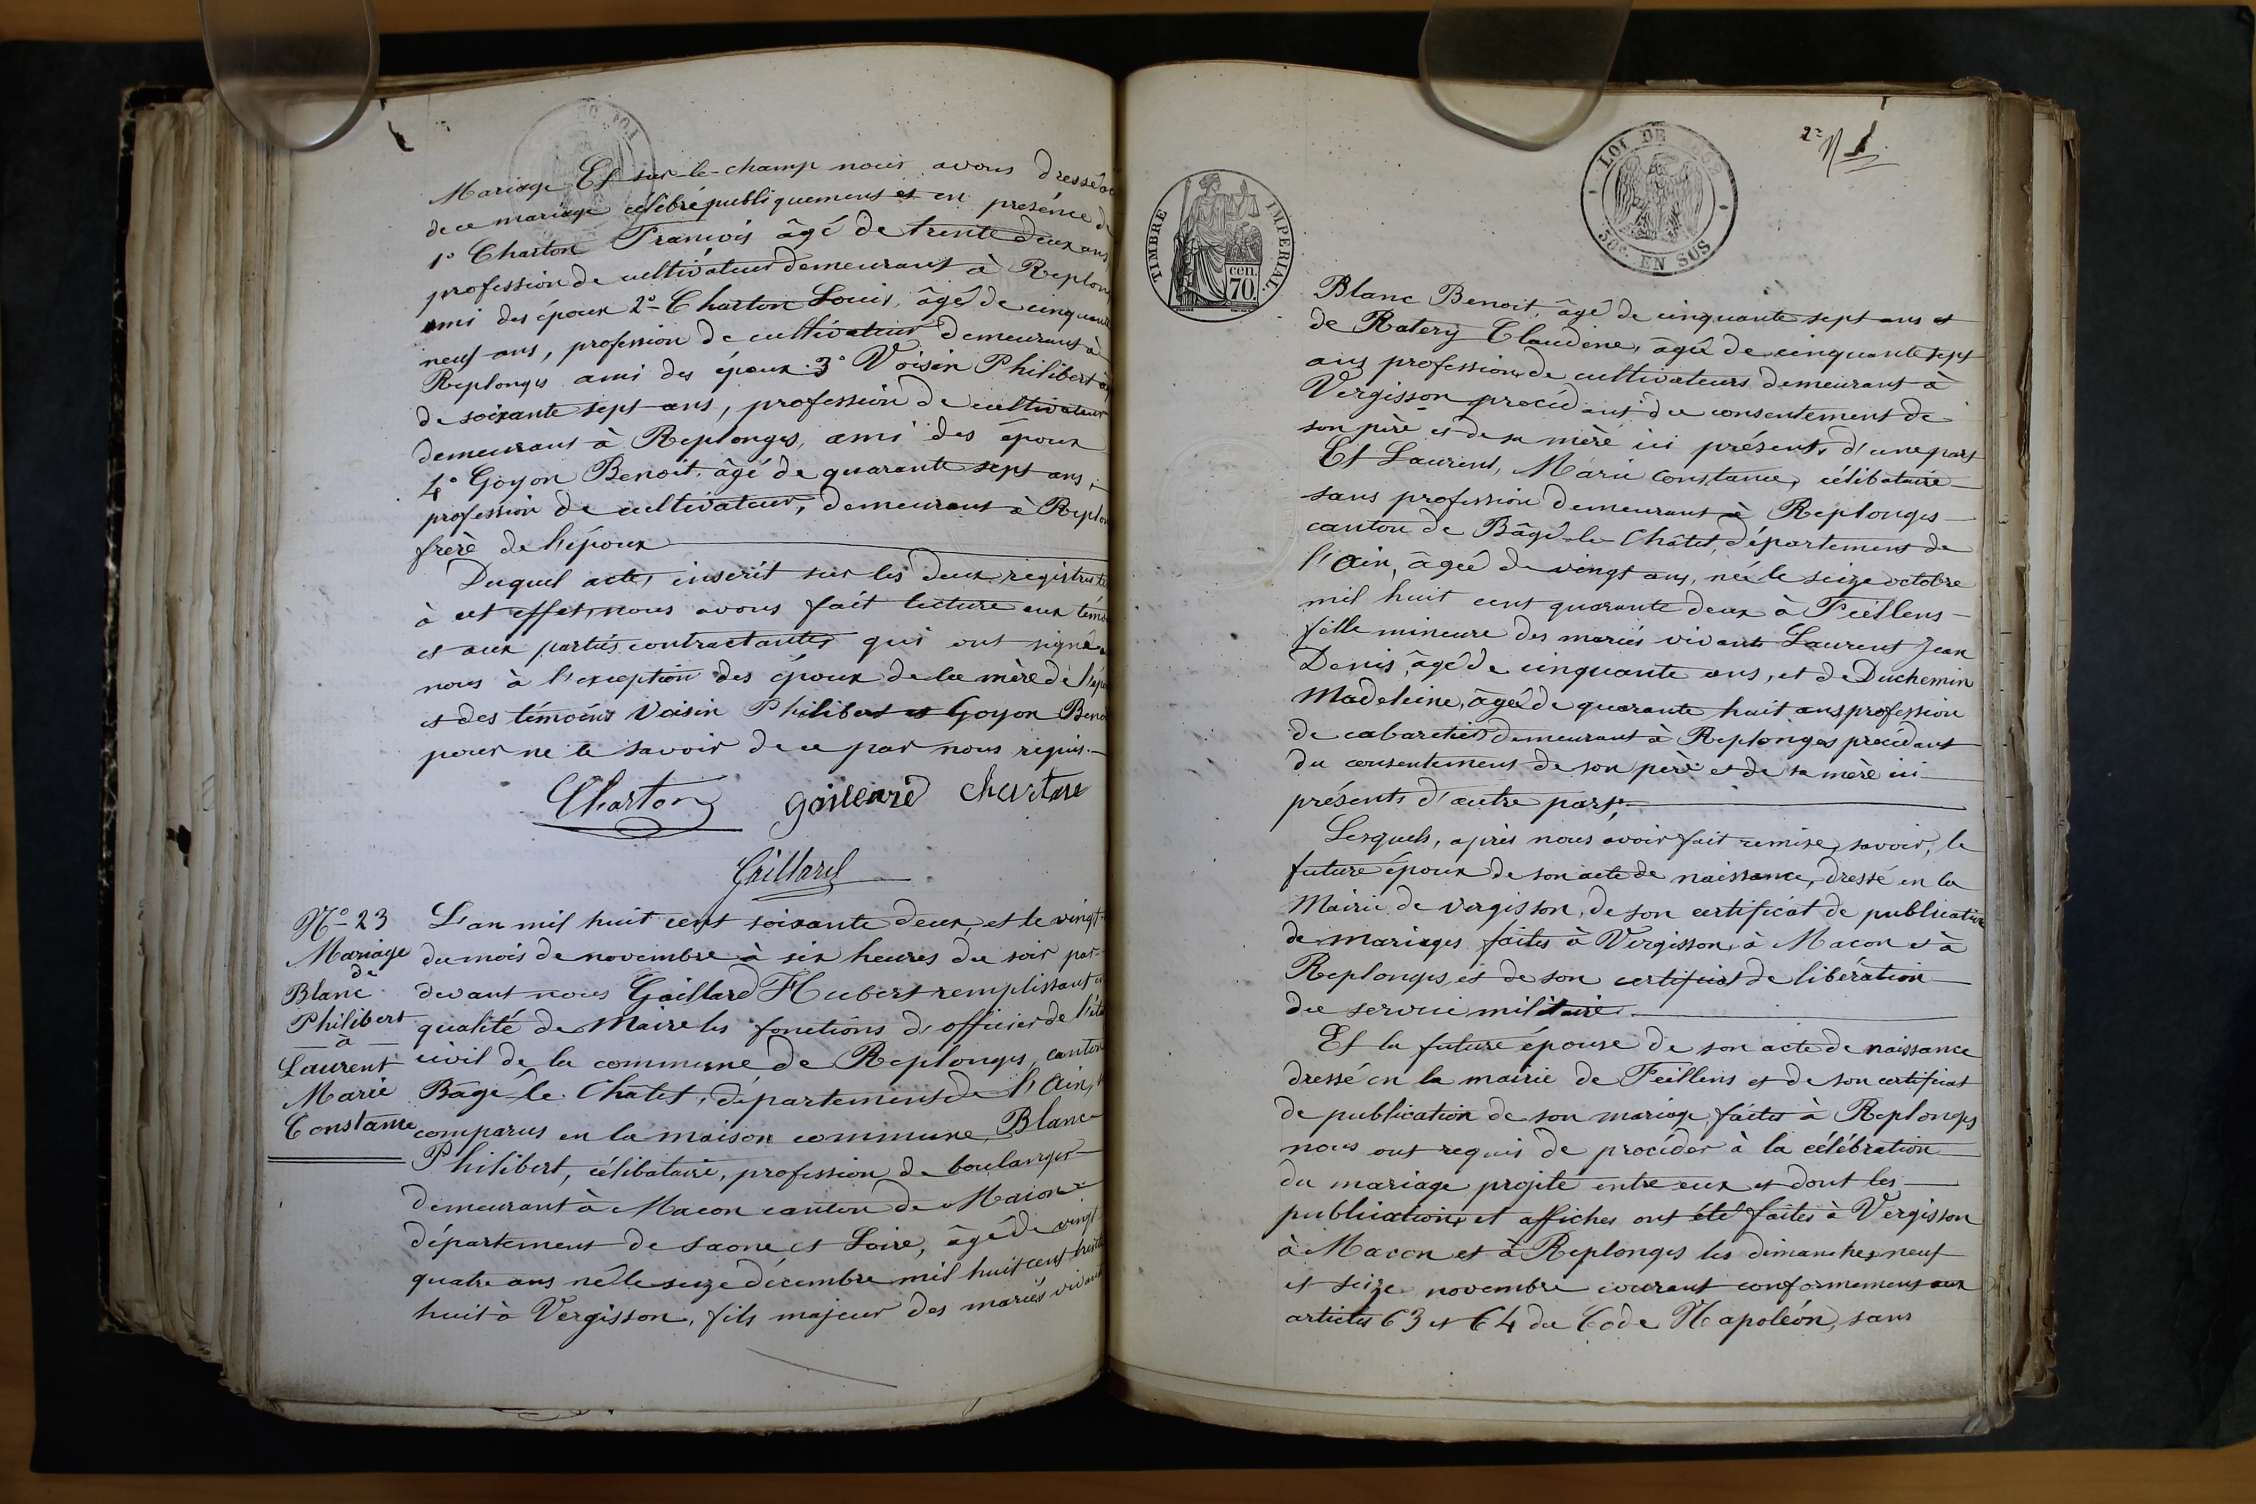 Mariage Et sur-le-champ nous avons dressé
de ce mariage célébré publiquement et en présence de
1° Charton François âgé de trente deux ans,
profession de cultivateur demeurant à Replong
ami des époux 2° Charton Louis, âgé de cinquante
neuf ans, profession de cultivateur demeurant à
Replonges ami des époux 3° Voisin Philibert âgé
de soixante sept ans, profession de cultivateur
demeurant à Replonges, ami des époux
4° Goyon Benoit, âgé de quarante sept ans,
profession de cultivateur, demeurant à Replon
frère de l'époux
Duquel acte, inscrit sur les deux registres
à cet effet, nous avons fait lecture aux témo
et aux parties contractantes qui ont signé
nous à l'exception des époux de la mère de l'ép
et des témoins Voisin Philibert et Goyon Beno
pour ne le savoir de ce par nous requis.
Charton gaillard charton
Gaillard
N° 23
Mariage
de
Blanc
Philibert
à
Laurent
Marie
Constance
L'an mil huit cent soixante deux, et le vingt
du mois de novembre à six heures du soir par
devant nous Gaillard Hubert remplissant en
qualité de Maire les fonctions d'officier de l'éta
civil de la commune de Replonges, canton
Bâgé-le-Chatel, département de l'Ain,
comparus en la maison commune, Blanc
Philibert, célibataire, profession de boulanger
demeurant à Macon canton de Macon
département de Saone et Loire, âgé de vingt
quatre ans né le seize décembre mil huit cent trente
huit à Vergisson, fils majeur des mariés vivant
2e N 1
LOI DE
30c. EN SUS
TIMBRE IMPERIAL.
cen.
70.
Blanc Benoit, âgé de cinquante sept ans et
de Ratery Claudine, âgée de cinquante sept
ans profession de cultivateurs demeurant à
Vergisson procédant du consentement de
son père et de sa mère ici présents d'une part
Et Laurent, Marie Constance, célibataire
sans profession demeurant à Replonges
canton de Bâgé-le-Châtel, département de
l'Ain, âgée de vingt ans, née le seize octobre
mil huit cent quarante deux à Feillens
fille mineure des mariés vivants Laurent Jean
Denis, âgé de cinquante ans, et de Duchemin
Madeleine, âgée de quarante huit ans profession
de cabaretiers demeurant à Replonges procédant
du consentement de son père et de sa mère ici
présents d'autre part,
Lesquels, après nous avoir fait remise, savoir, le
future époux de son acte de naissance, dressé en la
Mairie de Vergisson, de son certificat de publication
de mariages faites à Vergisson à Macon et à
Replonges, et de son certificat de libération
du service militaire.
Et la future épouse de son acte de naissance
dressé en la mairie de Feillens et de son certificat
de publication de son mariage faites à Replonges
nous ont requis de procéder à la célébration
du mariage projeté entre eux et dont les
publications et affiches ont été faites à Vergisson
à Macon et à Replonges les dimanches neuf
et seize novembre courant conformement aux
articles 63 et 64 du Code Napoléon, sans